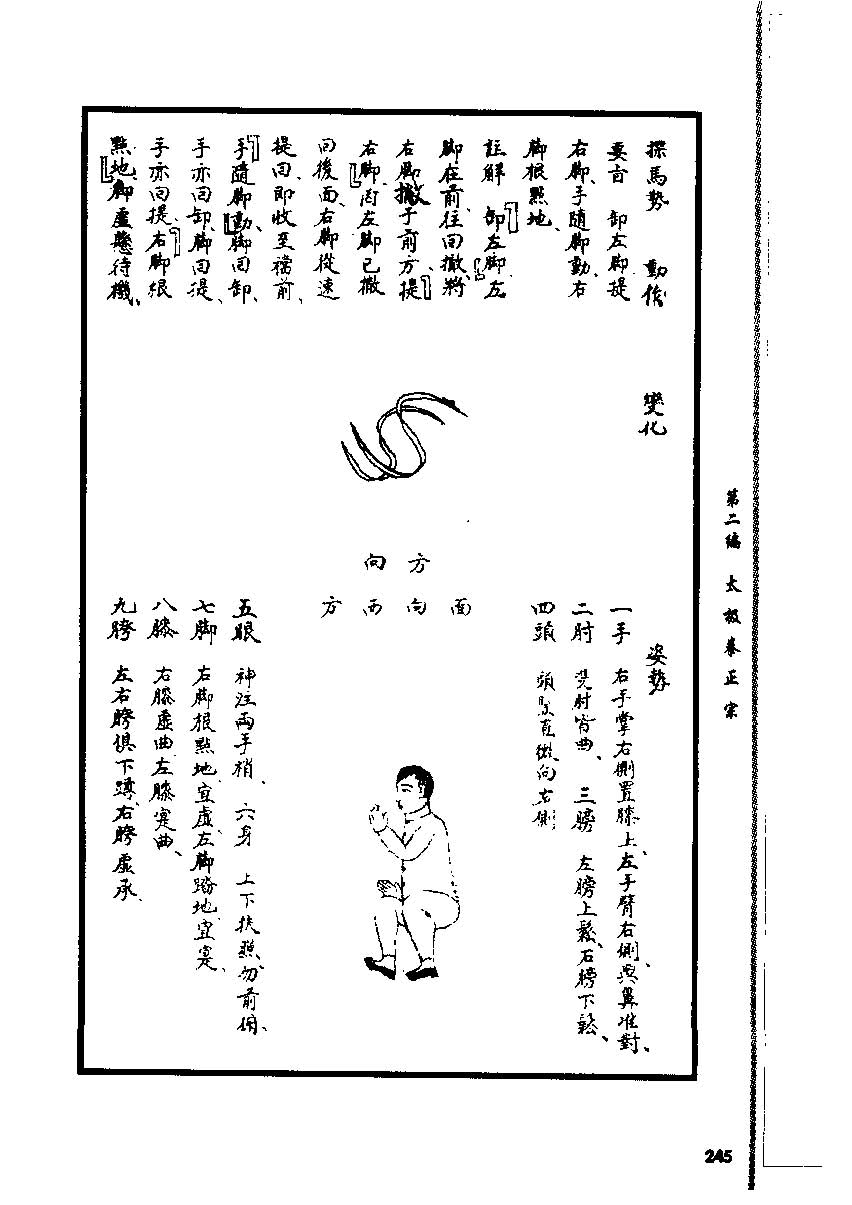 探馬勢　動作
要言　卸左脚提
右脚、手隨脚動、右
脚根點地、
註解　「卸左脚」左
脚在前、往回撤、「將
右脚撤于前方、提」
「右脚」因左脚已撤
回後面、右脚從速
提回、即收至襠前、
「手隨脚動」脚回卸、
手亦回卸、脚回提、
手亦回提、「右脚根
點地」脚虛懸待機、
變化
方
向
面向西方
姿勢
一手　右手掌右側置膝上、左手臂右側、與鼻准對、
二肘　雙肘皆曲、　三膀　左膀上鬆、右膀下鬆、
四頭　頭豎直微向右側
五眼　神注兩手梢、　六身　上下扶照、勿前俯、
七脚　右脚根點地、宜虛、左脚踏地、宜實、
八膝　右膝虛曲、左膝實曲、
九胯　左右胯俱下蹲、右胯虛承、
第二编　太极拳正宗
245